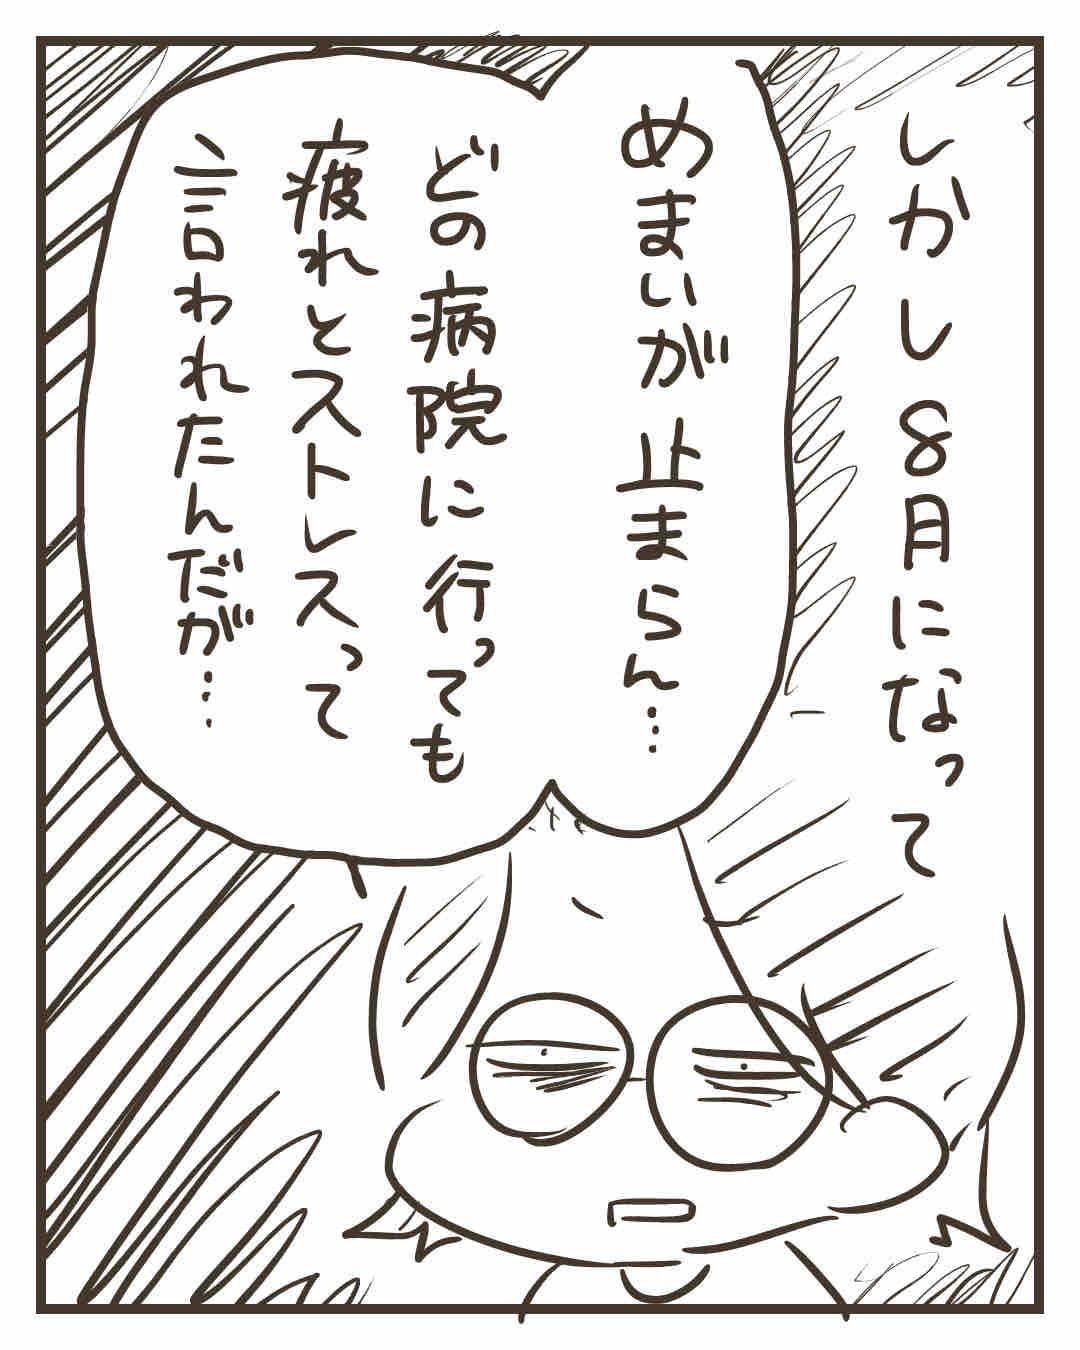 しかし8月になって
めまいが止まらん…
どの病院に行っても
疲れとストレスって
言われたんだが…